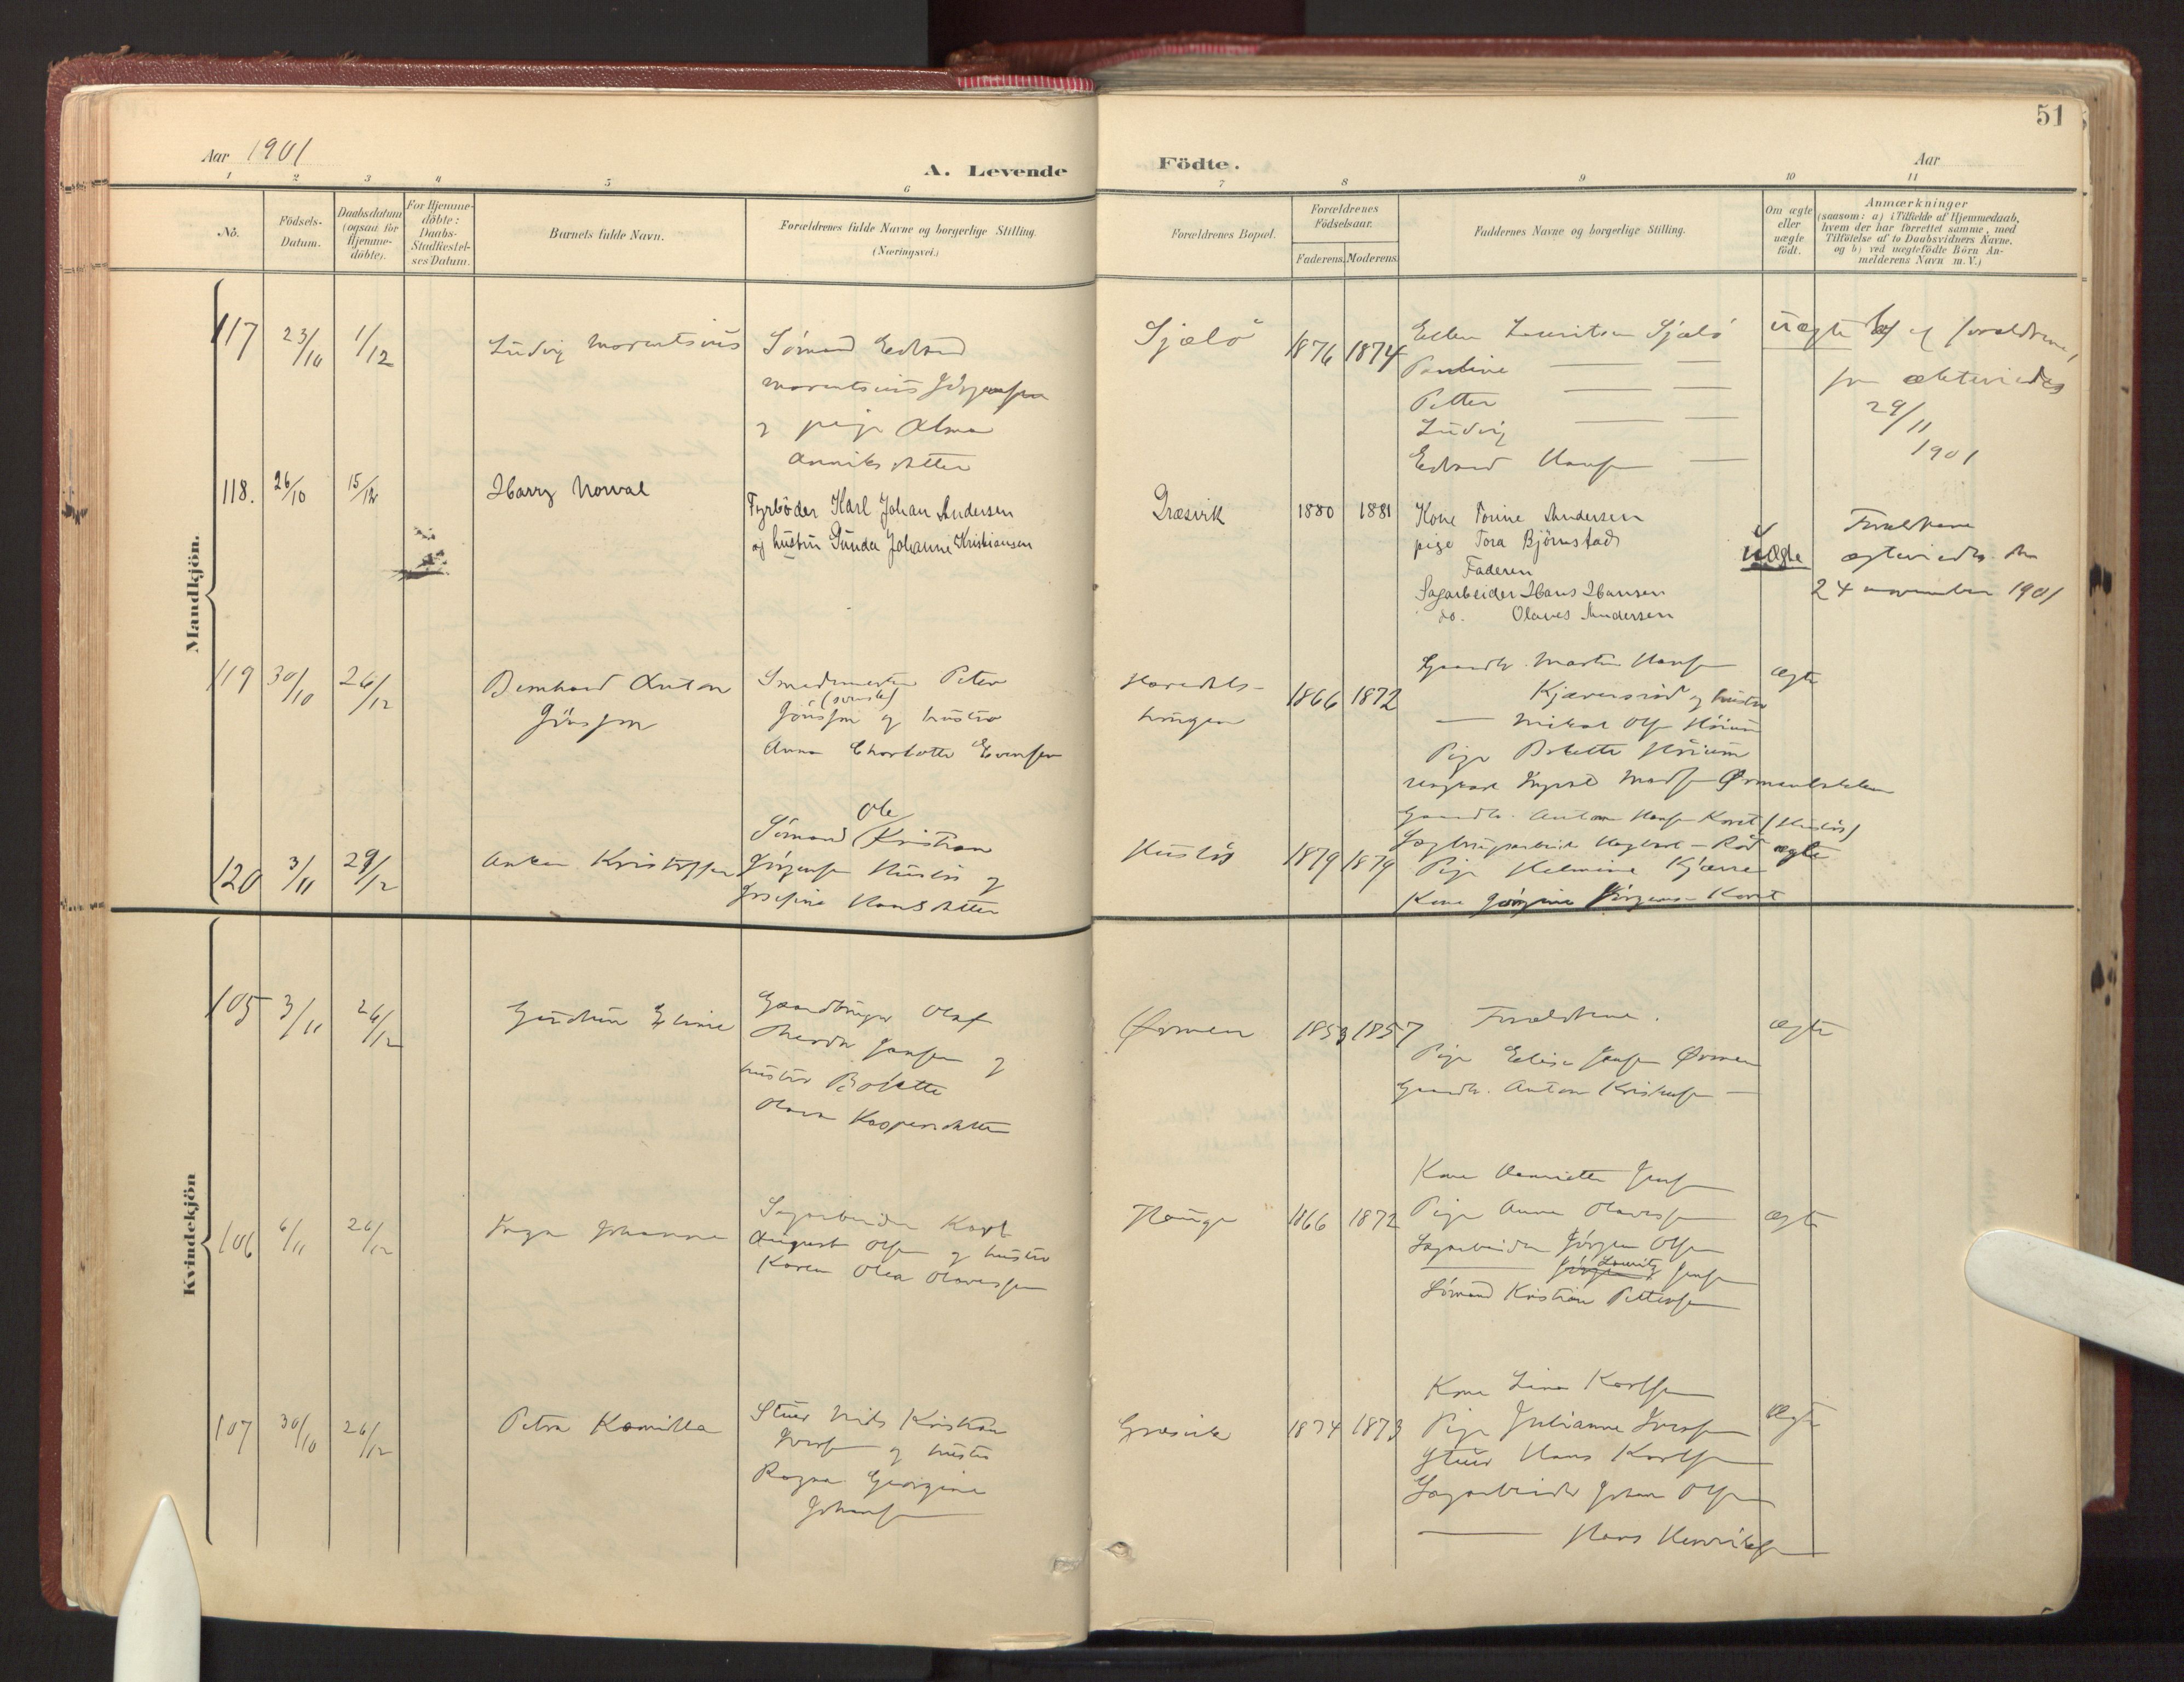 51
Aar 1901
A. Levende
Födte.
Aar
1 2 3 4 5 6 7 8 9 10 11
No.
Födsels-
Datum.
Daabsdatum
(ogsaa for
Hjemme-
döbte).
For Hjemme-
döbte:
Daabs-
Stadfæstel-
ses Datum.
Barnets fulde Navn.
Forældrenes fulde Navne og borgerlige Stilling.
(Næringsvei.)
Forældrenes Bopæl.
Forældrenes
Födselsaar.
Faderens. Moderens.
Faddernes Navne og borgerlige Stilling.
Om ægte
eller
uægte
födt.
Anmærkninger
(saasom: a) i Tilfælde af Hjemmedaab,
hvem der har forrettet samme, med
Tilföielse af to Daabsvidners Navne,
og b) ved uægtefödte Börn An-
melderens Navn m. V.)
Mandkjön.
117 23/10 1/12
Ludvig
Sömand Edvard
og pige Alma
Sjælö
1876 1874
Ellen Lauritsen Sjælö
Pauline —— —
Petter —— —
Ludvig —— —
Edvard Hansen —
uægte
29/11
1901
118. 26/10 15/12
Harry Norval
Fyrböder Karl Johan Andersen
og hustru Gunda Johanne Kristiansen
Græsvik
1880 1881
Kone Torine Andersen
pige Tora Björnstad
Faderen
Sagarbeider Hans Hansen
do. Olaves Andersen
uægte
Forældrene
24 november 1901
119 30/10 26/12
Bernhard Anton
Jönsson
Smedmester Peter
(svensk)
Jönsson og hustru
Anna Charlotte Evensen
1866 1872
Gaardbr. Martin Hansen
og hustru
— Mikal Olsen
Pige
ægte
120 3/11 29/12
Anker Kristoffer
Ole
Sömand Kristian
Jörgensen og
Josefine Hansdatter
1879 1879
Gaardbr. Anton Hansen
Pige Helmine Kjærre
Kone Jörgine Jörgensen
ægte
Kvindekjön
105 3/11 26/12
Gudrun Elvine
Gaardbruger Olaf
Jansen og
hustru Bolette
Ørmen
1853 1857
Forældrene.
Pige Elise Jansen Ørmen
Gaardbr. Anton Kristensen —
ægte
106 6/11 26/12
Inga Johanne
Sagarbeider Karl
August Olsen og hustru
Karen Olea Olavesen
Hauge
1866 1872
Kone Henriette Jensen
Pige Anna Olavesen
Sagarbeider Jörgen Olsen
—— Lauritz Jensen
Sömand Kristian Pettersen
ægte
107 30/10 26/12
Petra Kamilla
Stuer Nils Kristian
Iversen og hustru
Ragna Georgine
Johansen
Græsvik
1874 1873
Kone Lina Karlsen
Pige Julianne Iversen
Stuer Hans Karlsen
Sagarbeider Johan Olsen
—— Hans Henriksen
ægte